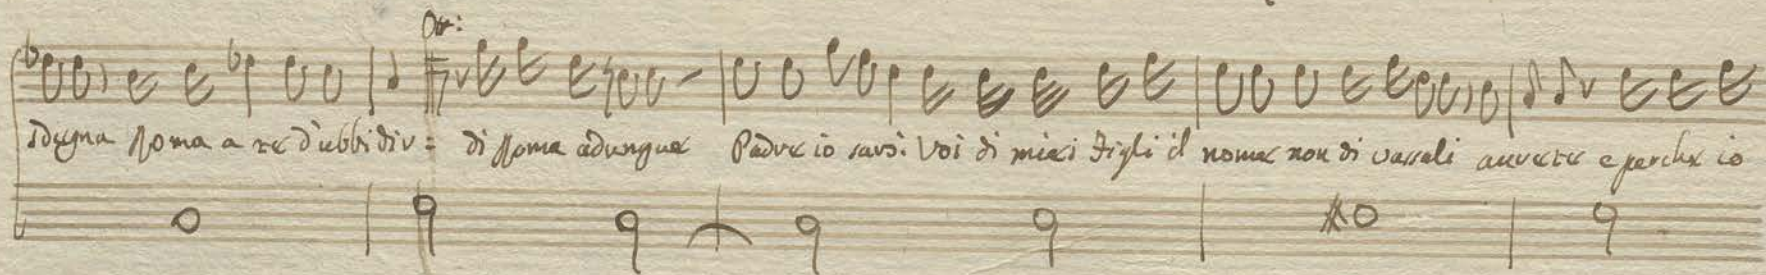 Ott:
sdegna Roma a re d'ubbidir = di Roma adunque Padre io sarò: Voi di miei figli il nome non di vassali avrete e perche io